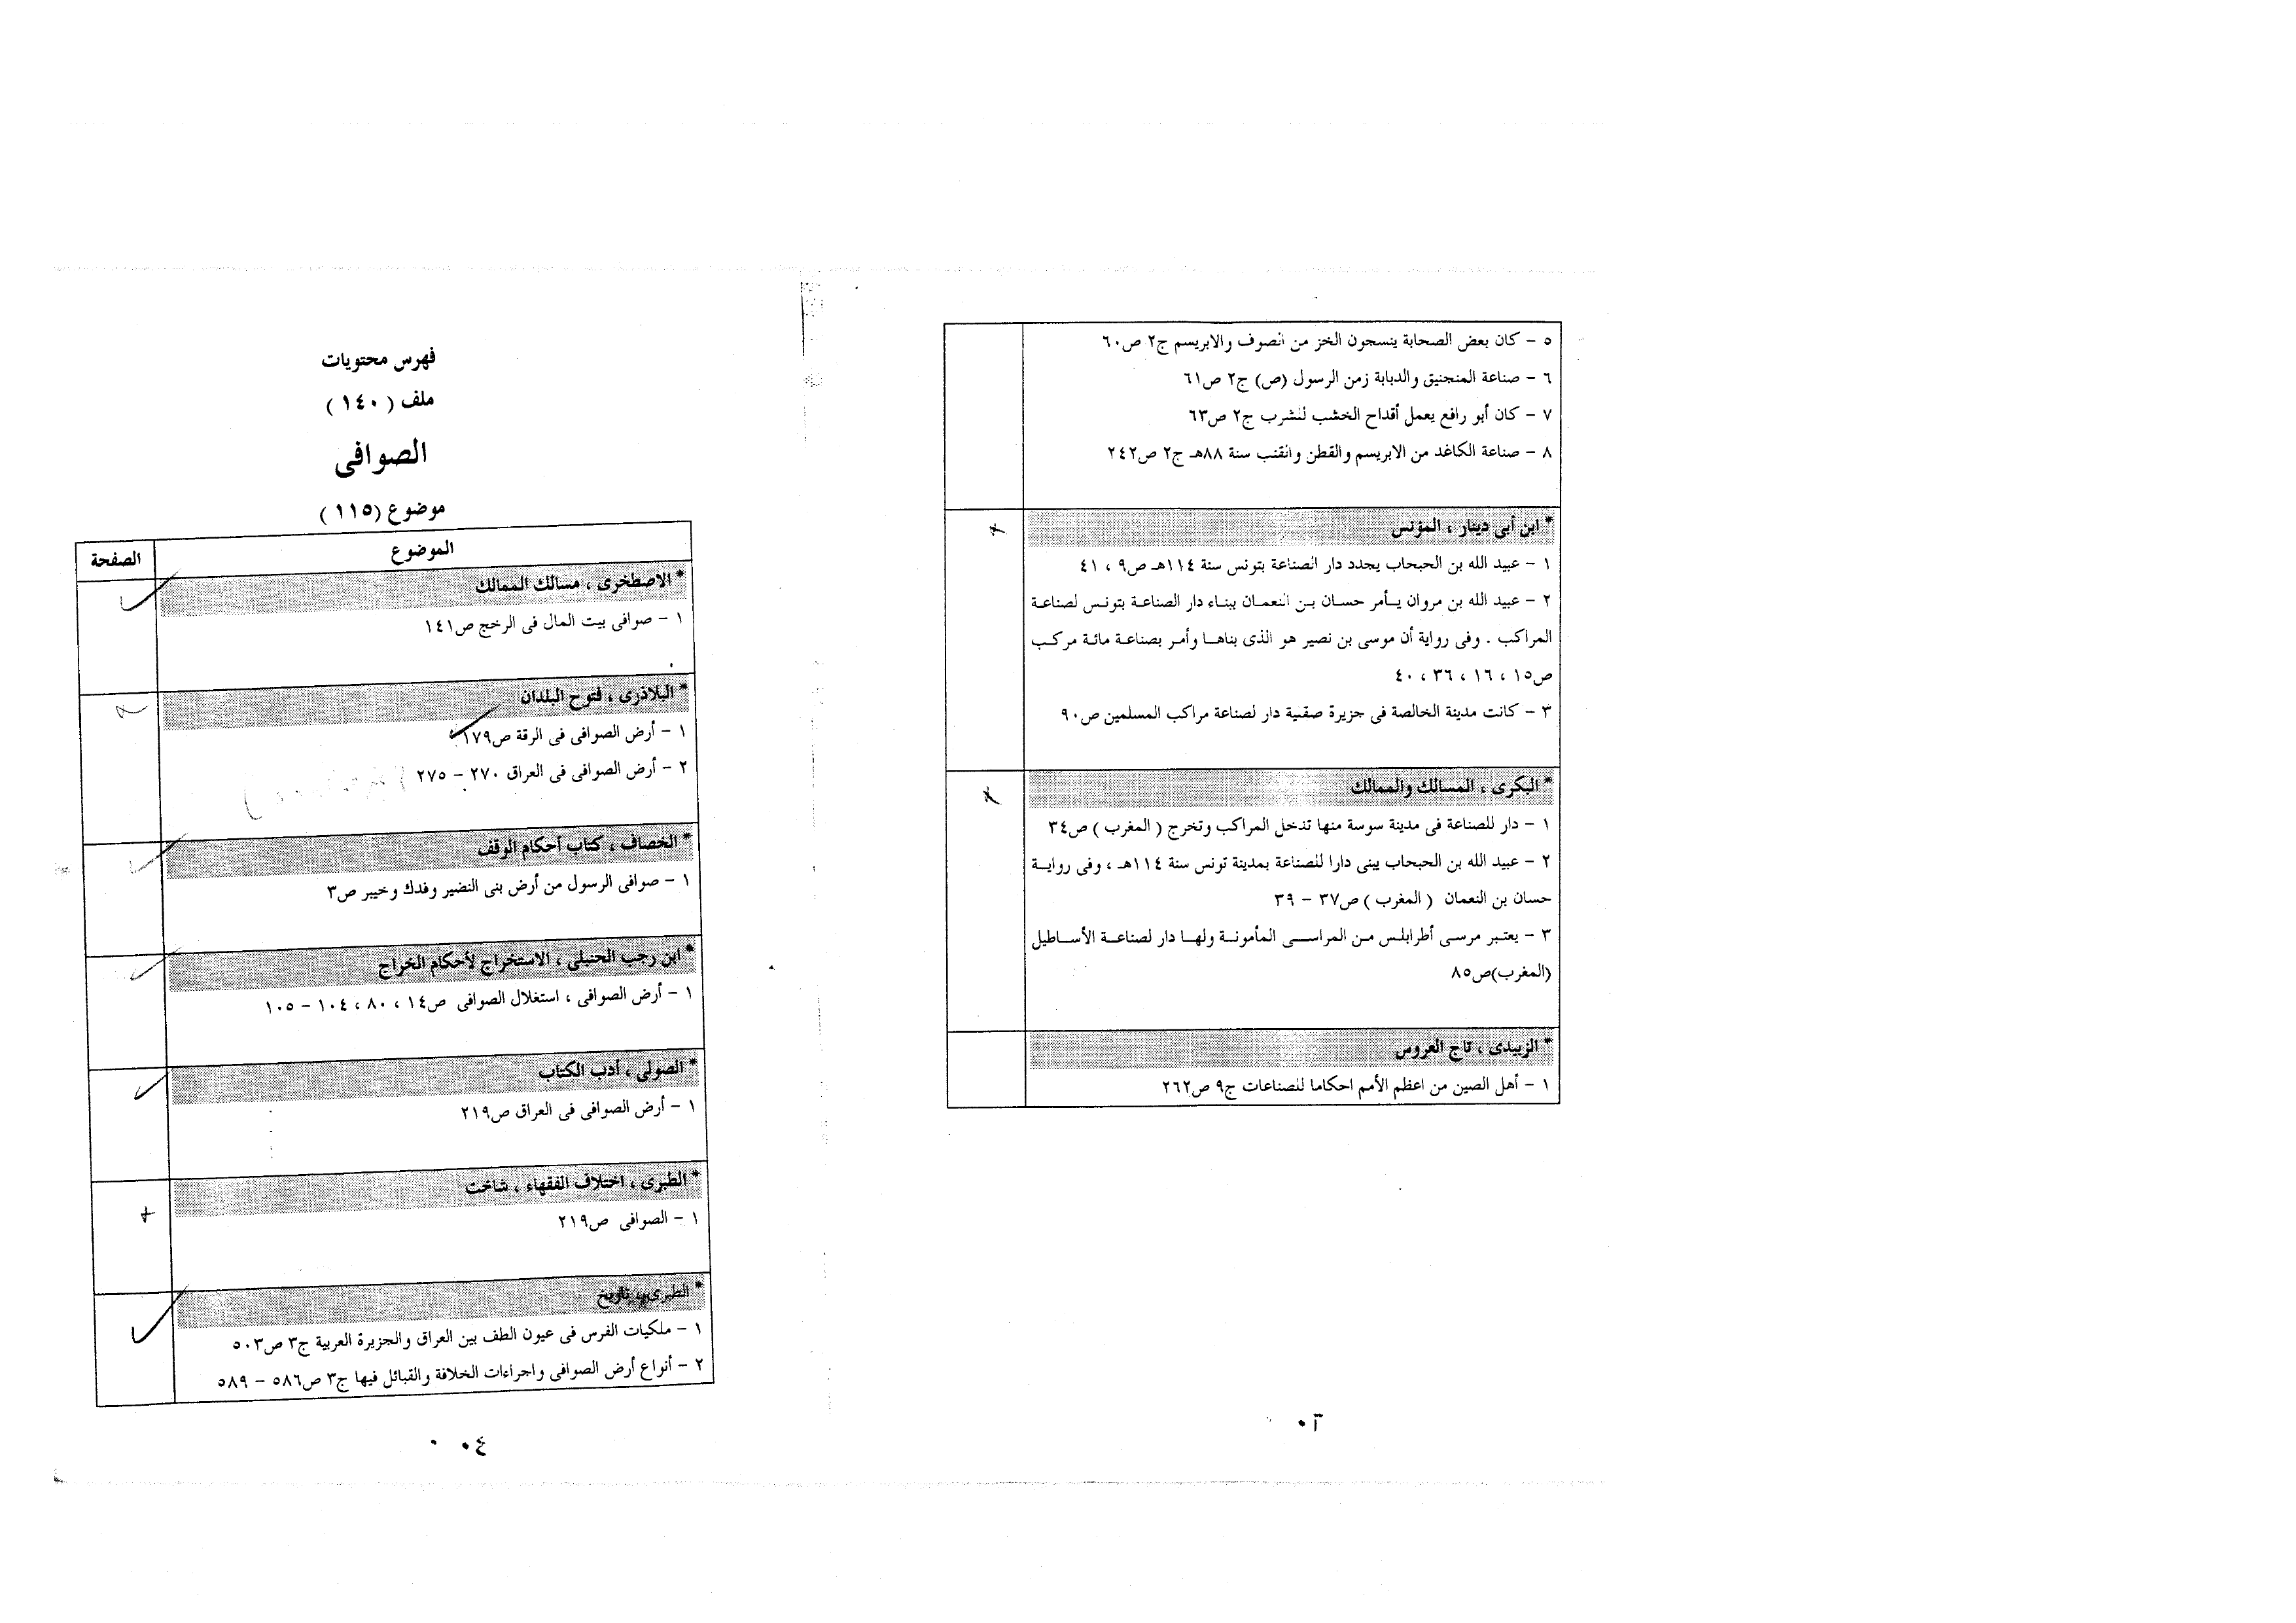 ٥ – كان بعض الصحابة ينسجون الخز من الصوف والابريسم ج٢ ص٦٠
٦ – صناعة المنجنيق والدبابة زمن الرسول (ص) ج٢ ص٦١
٧ – كان أبو رافع يعمل أقداح الخشب للشرب ج٢ ص٦٣
٨ – صناعة الكاغد من الابريسم والقطن والقنب سنة ٨٨هـ ج٢ ص٢٤٢
* ابن أبى دينار ، المؤنس
١ – عبيد الله بن الحبحاب يجدد دار الصناعة بتونس سنة ١١٤هـ ص٩ ، ٤١
٢ – عبيد الله بن مروان يأمر حسان بن النعمان ببناء دار الصناعة بتونس لصناعة
المراكب . وفى رواية أن موسى بن نصير هو الذى بناها وأمر بصناعة مائة مركب
ص١٥ ، ١٦ ، ٣٦ ، ٤٠
٣ – كانت مدينة الخالصة فى جزيرة صقلية دار لصناعة مراكب المسلمين ص٩٠
* البكرى ، المسالك والممالك
١ – دار للصناعة فى مدينة سوسة منها تدخل المراكب وتخرج ( المغرب ) ص٣٤
٢ – عبيد الله بن الحبحاب يبنى دارا للصناعة بمدينة تونس سنة ١١٤هـ ، وفى رواية
حسان بن النعمان ( المغرب ) ص٣٧ – ٣٩
٣ – يعتبر مرسى أطرابلس من المراسى المأمونة ولها دار لصناعة الأساطيل
(المغرب)ص٨٥
* الزبيدى ، تاج العروس
١ – أهل الصين من اعظم الأمم احكاما للصناعات ج٩ ص٢٦٢
فهرس محتويات
ملف ( ١٤٠ )
الصوافى
موضوع (١١٥ )
الموضوع الصفحة
* الاصطخرى ، مسالك الممالك
١ – صوافى بيت المال فى الرخج ص١٤١
* البلاذرى ، فتوح البلدان
١ – أرض الصوافى فى الرقة ص١٧٩
٢ – أرض الصوافى فى العراق ٢٧٠ – ٢٧٥
* الخصاف ، كتاب أحكام الوقف
١ – صوافى الرسول من أرض بنى النضير وفدك وخيبر ص٣
* ابن رجب الحنبلى ، الاستخراج لأحكام الخراج
١ – أرض الصوافى ، استغلال الصوافى ص١٤ ، ٨٠ ، ١٠٤ – ١٠٥
* الصولى ، أدب الكتاب
١ – أرض الصوافى فى العراق ص٢١٩
* الطبرى ، اختلاف الفقهاء ، شاخت
١ – الصوافى ص٢١٩
* الطبرى ، تاريخ
١ – ملكيات الفرس فى عيون الطف بين العراق والجزيرة العربية ج٣ ص٥٠٣
٢ – أنواع أرض الصوافى واجراءات الخلافة والقبائل فيها ج٣ ص٥٨٦ – ٥٨٩